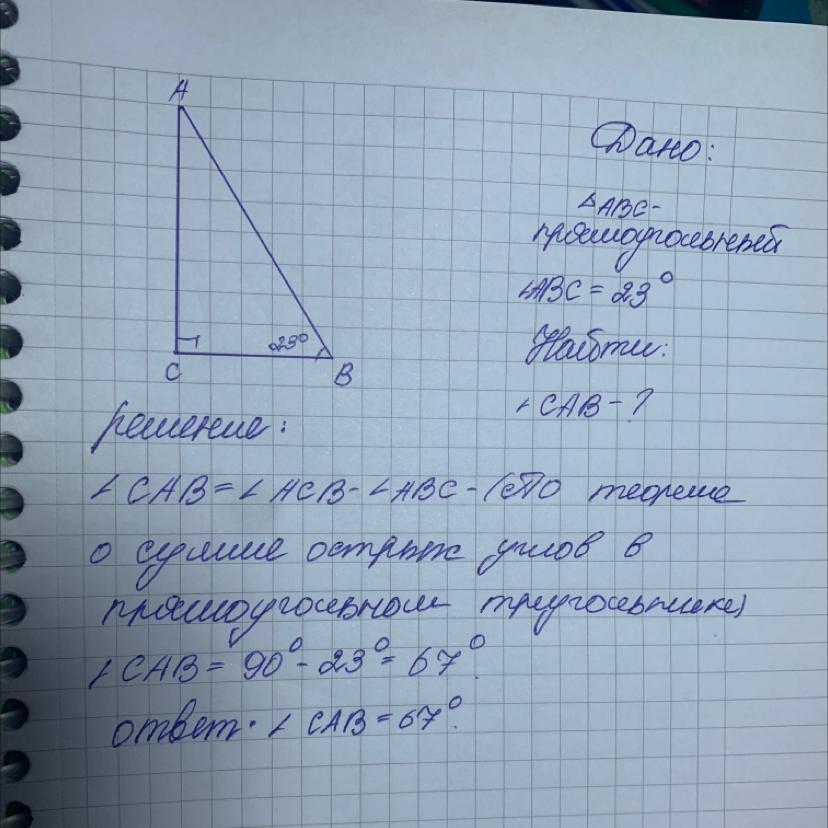 A
Дано:
△ABC-
прямоугольный
∠ABC = 23°
23°
C
B
Найти:
∠CAB - ?
решение:
∠CAB = ∠ACB - ∠ABC - (По теореме
о сумме острых углов в
прямоугольном треугольнике)
∠CAB = 90° - 23° = 67°.
ответ. ∠CAB = 67°.